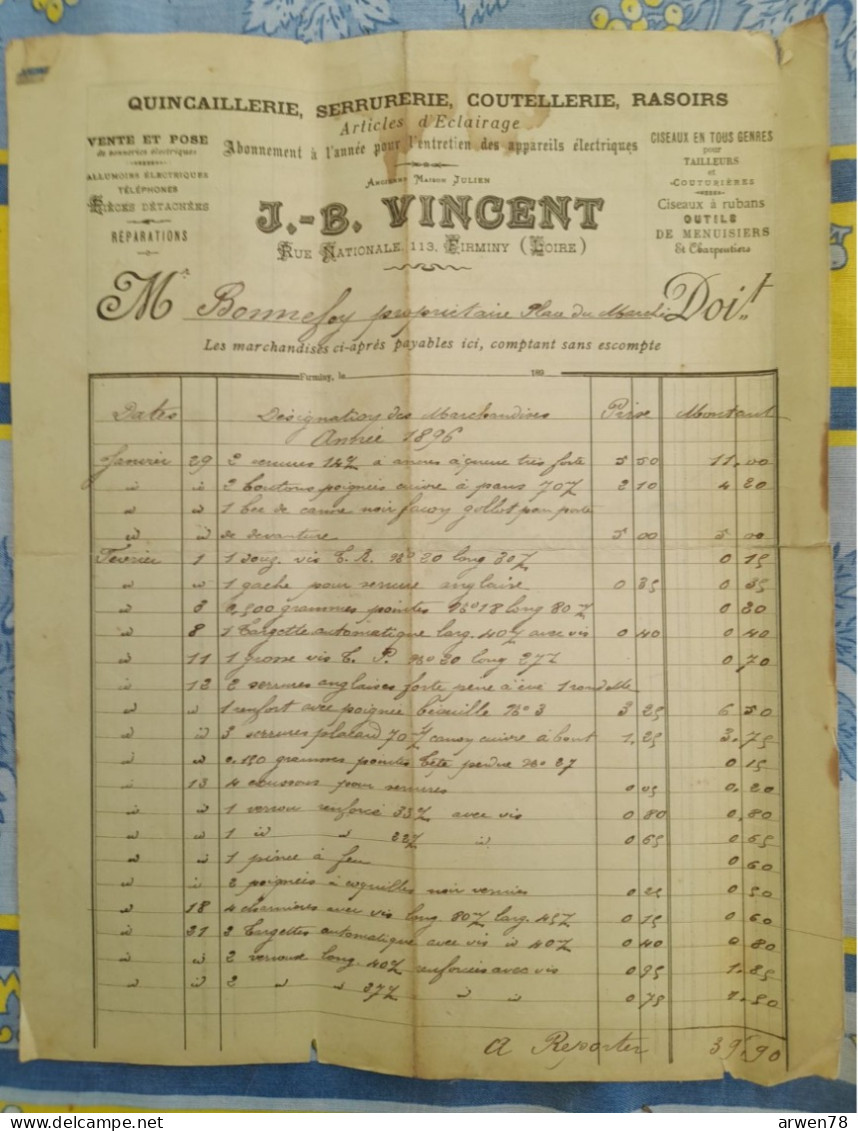 QUINCAILLERIE, SERRURERIE, COUTELLERIE, RASOIRS
Articles d'Eclairage
Abonnement à l'année pour l'entretien des appareils électriques
VENTE ET POSE
de sonneries électriques
ALLUMOIRS ÉLECTRIQUES
TÉLÉPHONES
PIÈCES DÉTACHÉES
RÉPARATIONS
ANCIENNE MAISON JULIEN
J.-B. VINCENT
RUE NATIONALE, 113, FIRMINY (LOIRE)
CISEAUX EN TOUS GENRES
pour
TAILLEURS
et
COUTURIÈRES
Ciseaux à rubans
OUTILS
DE MENUISIERS
Et Charpentiers
Mr Bonnefoy propriétaire Place du Marché Doit
Les marchandises ci-après payables ici, comptant sans escompte
Firminy, le 189
Dates Désignation des Marchandises Prix Montant
Année 1896
Janvier 29 2 serrures 14% à queue très forte 5 50 11.00
" " 2 boutons poignées cuivre à pans 70% 2 10 4 20
" " 1 bec de canne noir façon pour porte
" " de devanture 5 00 5 00
Février 1 1 vis T. R. No 20 long 30% 0 15
" " 1 gache pour serrure anglaise 0 35 0 35
" 3 0,500 grammes pointes No 18 long 80% 0 30
" 8 1 Targette automatique larg. 40% avec vis 0 40 0 40
" 11 1 grosse vis T. P. No 20 long 27% 0 70
" 12 2 serrures anglaises forte pene 1 rondelle
" " 1 renfort avec poignée béquille No 3 3 25 6 50
" " 3 serrures placard 70% canon cuivre à bout 1.25 3.75
" " 0.150 grammes pointes tête perdue No 27 0 15
" 13 4 pour serrures 0 05 0.20
" " 1 verrou renforcé 33% avec vis 0 80 0.80
" " 1 " " 22% " 0 65 0.65
" " 1 pince à feu 0 60
" " 2 poignées à coquilles noir vernies 0 25 0 50
" 18 4 charnières avec vis long 80% larg. 45% 0 15 0 60
" 21 2 Targettes automatique avec vis à 40% 0 40 0 80
" " 2 verrous long. 40% renforcés avec vis 0 95 1.85
" " 2 " " 27% " " 0 75 1.50
A Reporter 39.90
arwen78